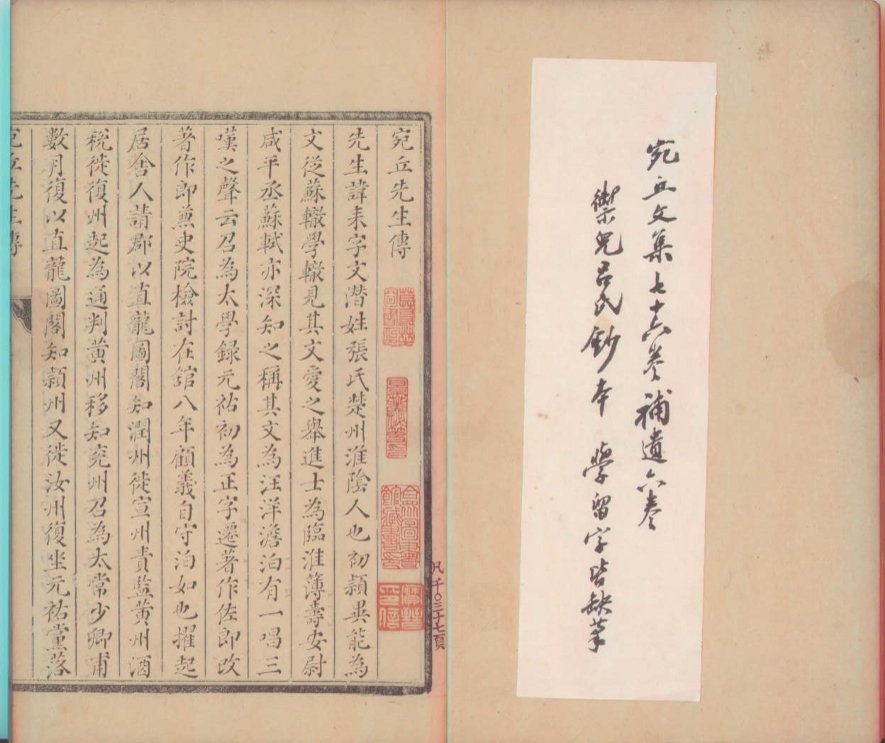 宛丘文集七十六卷補遺六卷
禦兒呂氏鈔本 學留字皆缺筆
宛丘先生傳
先生諱耒字文潛姓張氏楚州淮隂人也初頴異能為
文從蘇轍學轍見其文愛之舉進士為臨淮簿壽安尉
咸平丞蘇軾亦深知之稱其文為汪洋澹泊有一唱三
嘆之聲云召為太學録元祐初為正字遷著作佐郎改
著作郎兼史院檢討在舘八年顧義自守泊如也擢起
居舍人請郡以直龍圖閣知潤州徙宣州責監黃州酒
稅徙復州起為通判黃州移知兗州召為太常少卿甫
數月復以直龍圖閣知頴州又徙汝州復坐元祐黨落
宛丘先生傳
凡千〇三十七頁